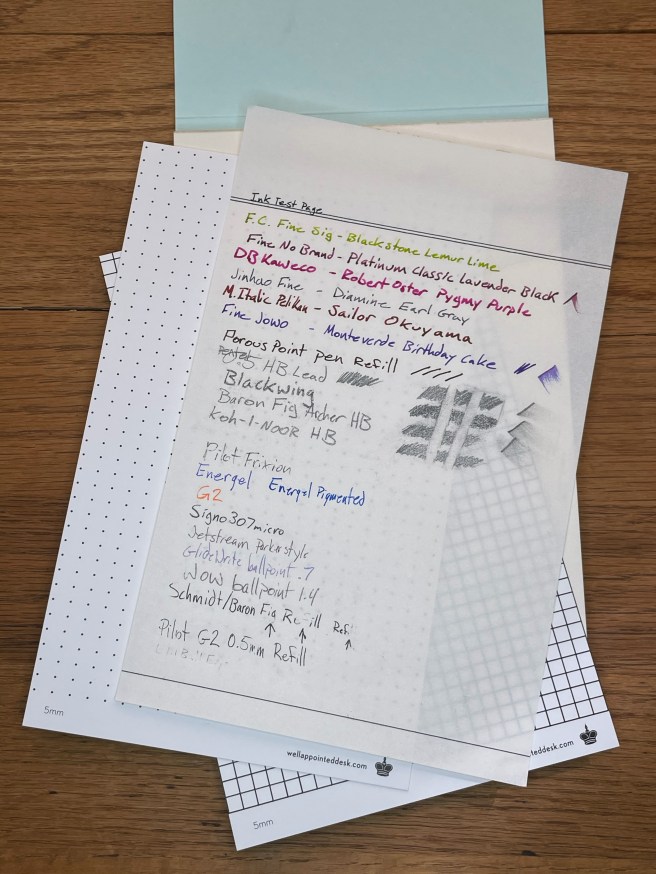 Ink Test Page
F.C. Fine Sig - Blackstone Lemur Lime
Fine No Brand - Platinum Classic Lavender Black
DB Kaweco - Robert Oster Pygmy Purple
Jinhao Fine - Diamine Earl Gray
M. Italic Pelikan - Sailor Okuyama
Fine Jowo - Monteverde Birthday Cake
Porous Point pen Refill
.5 HB Lead
Blackwing
Baron Fig Archer HB
Koh-I-Noor HB
Pilot Frixion
Energel Energel Pigmented
G2
Signo 307 micro
Jetstream Parker style
GlideWrite ballpoint .7
Wow ballpoint 1.4
Schmidt/Baron Fig Refill Refi
Pilot G2 0.5mm Refill
5mm
wellappointeddesk.com
teddesk.com
5mm